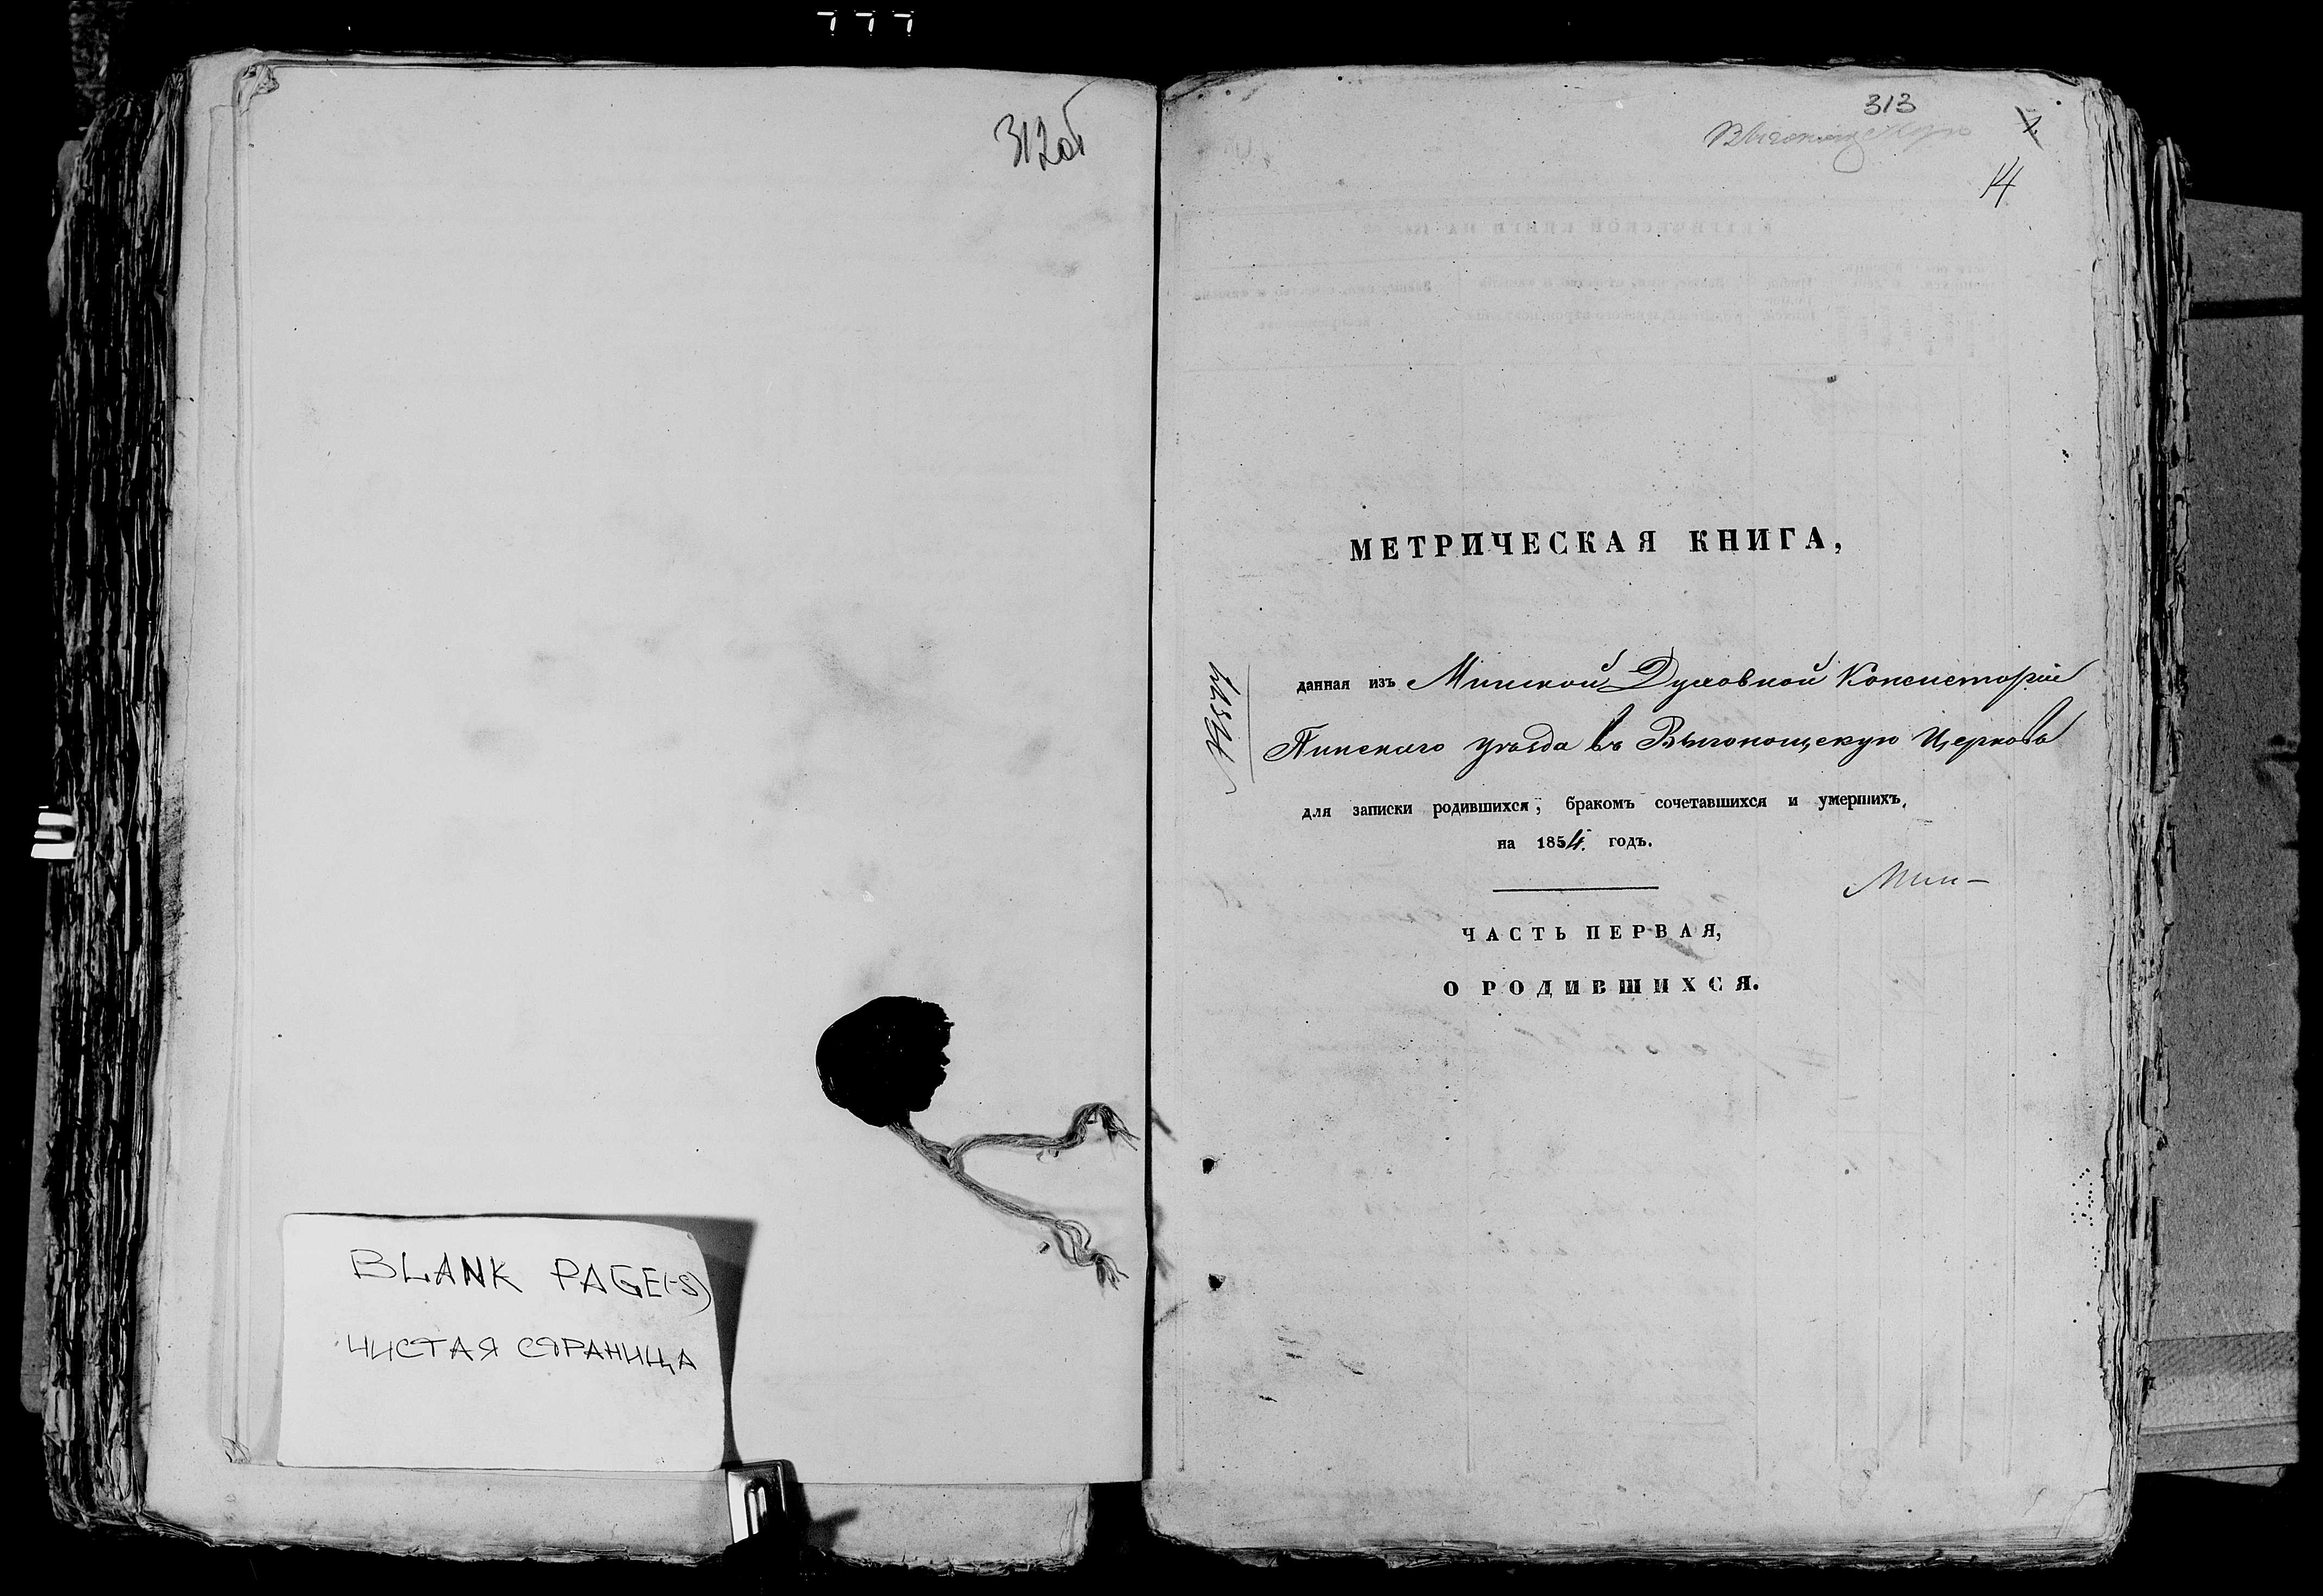 777
312об
BLANK PAGE(-S)
ЧИСТАЯ СТРАНИЦА
313
Выгонощскую
14
МЕТРИЧЕСКАЯ КНИГА,
данная изъ Минской Духовной Консисторіи
Пинскаго уѣзда въ Выгонощскую Церковь
для записки родившихся, бракомъ сочетавшихся и умершихъ,
на 1854. годъ.
Мин-
ЧАСТЬ ПЕРВАЯ,
О РОДИВШИХСЯ.